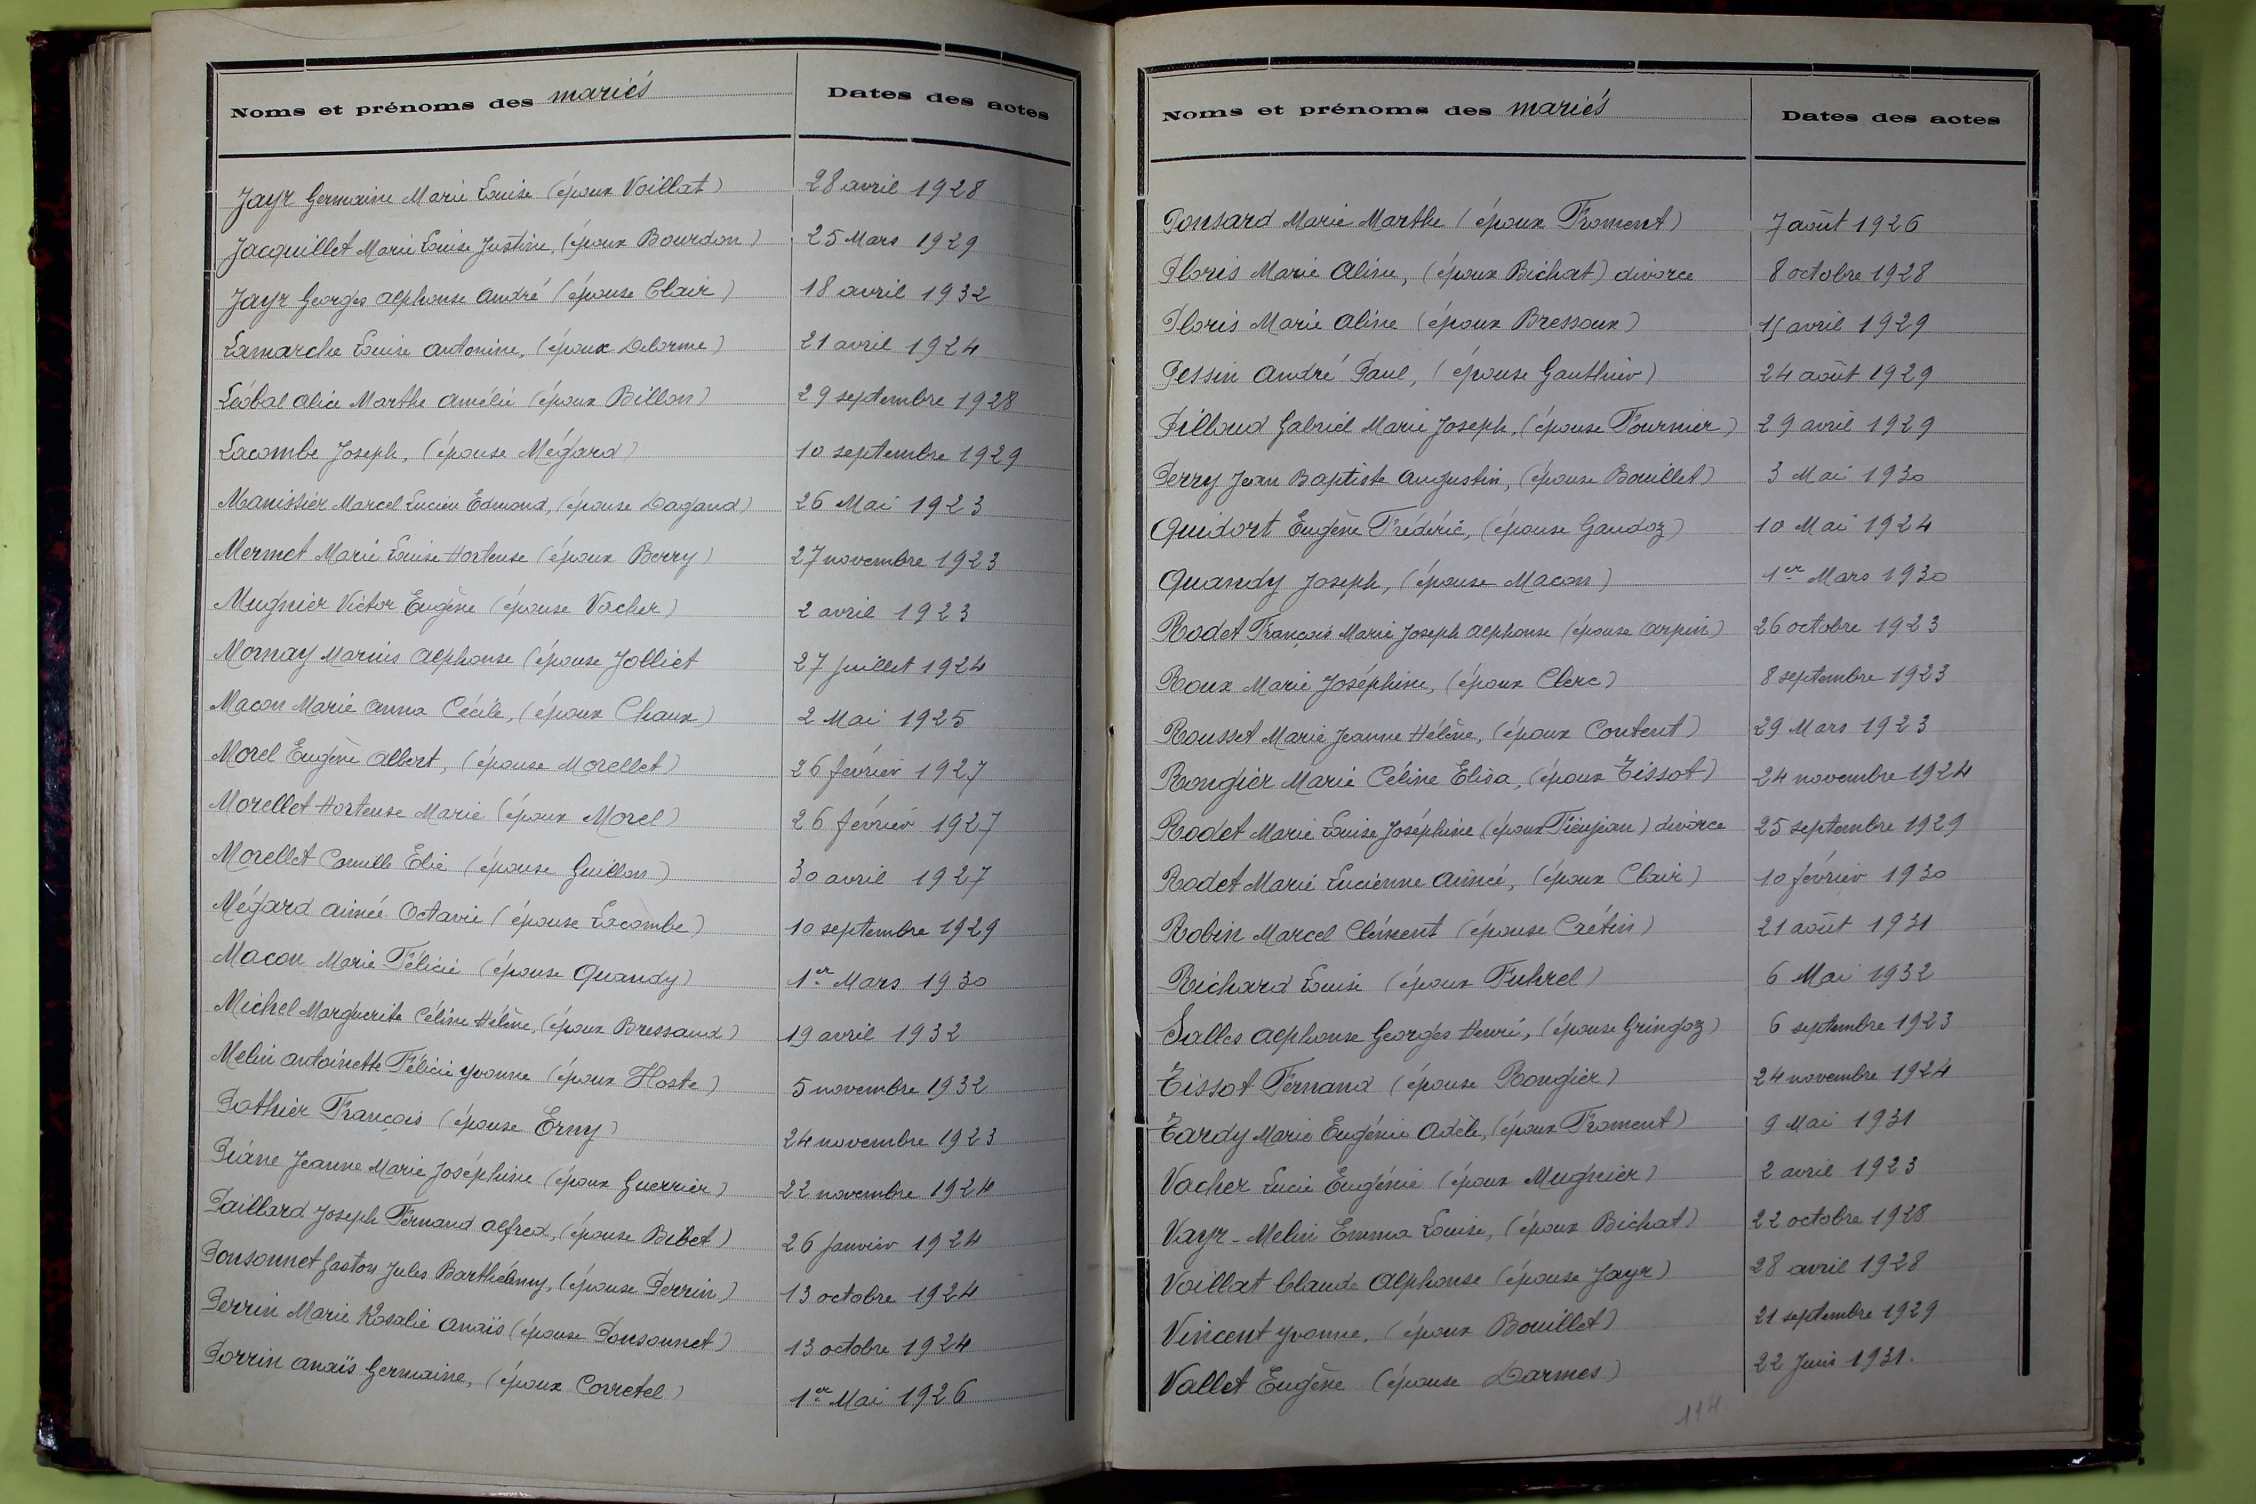 Noms et prénoms des mariés Dates des actes
Jayr Germaine Marie Louise (époux Voillat) 28 avril 1928
Jacquillet Marie Louise Justine, (époux Bourdon) 25 Mars 1929
Jayr Georges Alphonse André (épouse Clair) 18 avril 1932
Lamarche Louise Antonine, (époux Delorme) 21 avril 1924
Léobal Alice Marthe Amélie (époux Billon) 29 septembre 1928
Lacombe Joseph, (épouse Mégard) 10 septembre 1929
Manissier Marcel Lucien Edmond, (épouse Dagand) 26 Mai 1923
Mermet Marie Louise Hortense (époux Berry) 27 novembre 1923
Mugnier Victor Eugène (épouse Vacher) 2 avril 1923
Mornay Marius Alphonse (épouse Jolliet 27 Juillet 1924
Macon Marie Anna Cécile, (époux Chaux) 2 Mai 1925
Morel Eugène Albert, (épouse Morellet) 26 février 1927
Morellet Hortense Marie (époux Morel) 26 février 1927
Morellet Camille Elie (épouse Guillon) 30 avril 1927
Mégard Aimée Octavie (épouse Lacombe) 10 septembre 1929
Macon Marie Félicie (épouse Quandy) 1er Mars 1930
Michel Marguerite Céline Hélène, (époux Bressand) 19 avril 1932
Melin Antoinette Félicie Yvonne (époux Hoste) 5 novembre 1932
Pothier François (épouse Erny) 24 novembre 1923
Piane Jeanne Marie Joséphine (époux Guerrier) 22 novembre 1924
Paillard Joseph Fernand Alfred, (épouse Bibet) 26 Janvier 1924
Ponsonnet Gaston Jules Barthélemy, (épouse Perrin) 13 octobre 1924
Perrin Marie Rosalie Anaïs (épouse Ponsonnet) 13 octobre 1924
Porrin Anaïs Germaine, (époux Corretel) 1er Mai 1926
Noms et prénoms des mariés Dates des actes
Ponsard Marie Marthe (époux Froment) 7 août 1926
Floris Marie Aline, (époux Bichat) divorce 8 octobre 1928
Floris Marie Aline (époux Bressoux) 15 avril 1929
Pessin André Paul, (épouse Gauthier) 24 août 1929
Pilloud Gabriel Marie Joseph, (épouse Fournier) 29 avril 1929
Perry Jean Baptiste Augustin, (épouse Bouillet) 3 Mai 1930
Quidort Eugène Frédéric, (épouse Gaudoz) 10 Mai 1924
Quandy Joseph, (épouse Macon) 1er Mars 1930
Rodet François Marie Joseph Alphonse (épouse Arpin) 26 octobre 1923
Roux Marie Joséphine, (époux Clerc) 8 septembre 1923
Rousset Marie Jeanne Hélène, (époux Content) 29 Mars 1923
Rongier Marie Céline Elisa, (époux Tissot) 24 novembre 1924
Rodet Marie Louise Joséphine, (époux Tieujean) divorce 25 septembre 1929
Rodet Marie Lucienne Aimée, (époux Clair) 10 février 1930
Robin Marcel Clément (épouse Crétin) 21 août 1931
Richard Louise (époux Fuhrel) 6 Mai 1932
Salles Alphonse Georges Henri, (épouse Gringoz) 6 septembre 1923
Tissot Fernand (épouse Rongier) 24 novembre 1924
Tardy Marie Eugénie Adèle, (époux Froment) 9 Mai 1931
Vacher Lucie Eugénie (époux Mugnier) 2 avril 1923
Vayr-Melin Emma Louise, (époux Bichat) 22 octobre 1928
Voillat Claude Alphonse (épouse Jayr) 28 avril 1928
Vincent Yvonne, (époux Bouillet) 21 septembre 1929
Vallet Eugène (épouse Darmes) 22 Juin 1931.
114